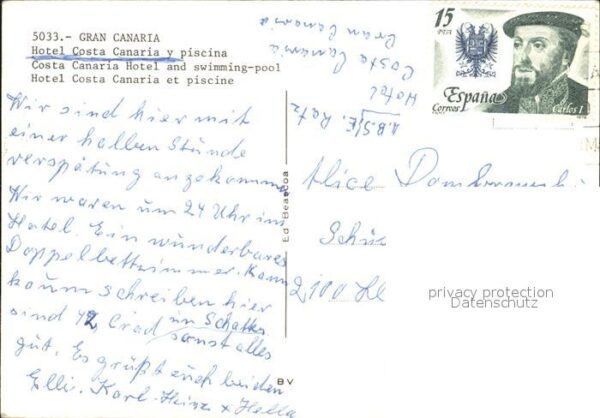 5033.- GRAN CANARIA
Hotel Costa Canaria y piscina
Costa Canaria Hotel and swimming-pool
Hotel Costa Canaria et piscine
Wir sind hier mit
einer halben Stunde
verspätung angekommen
Wir waren um 24 Uhr im
Hotel. Ein wunderbares
Doppelbettzimmer. Kann
kaum schreiben hier
sind 42 Grad im Schatten
sonst alles
gut. Es grüßt euch beiden
Elli. Karl-Heinz + Hella
Ed. Beascoa
BV
Hotel
Costa Canaria
Gran Canaria
15
PTA
España
Correos
Carlos I
Alice
Schüt
2100
privacy protection
Datenschutz